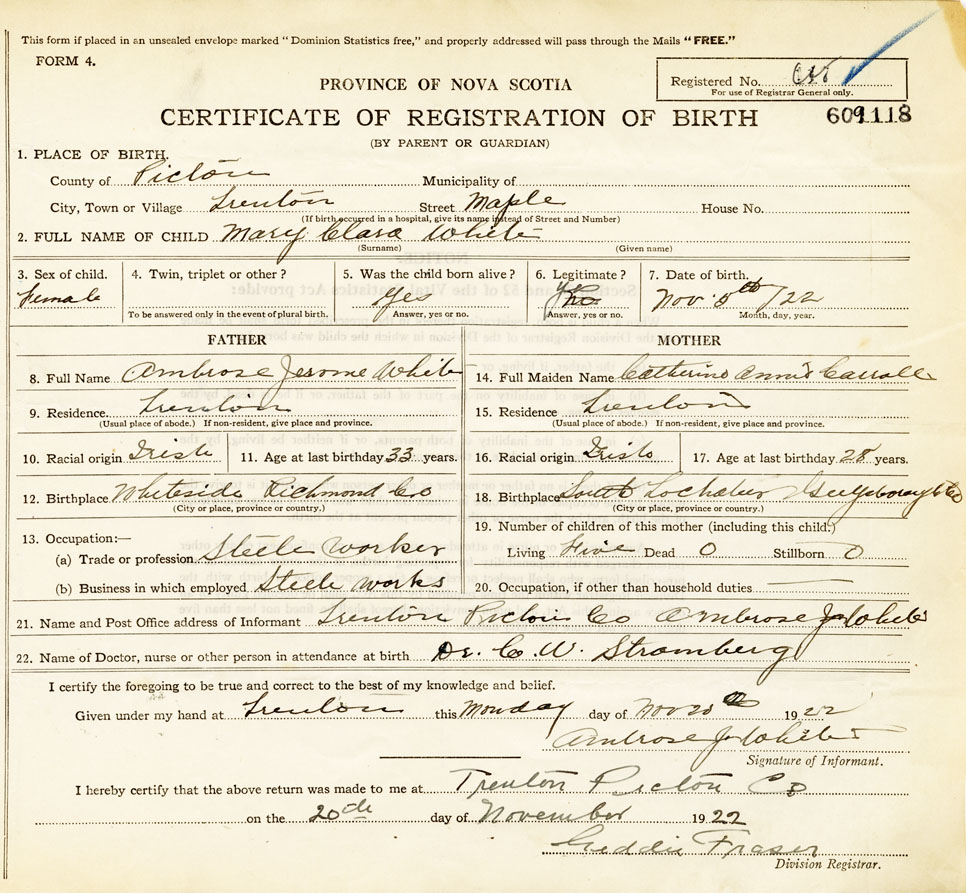 This form if placed in an unsealed envelope marked "Dominion Statistics free," and properly addressed will pass through the Mails "FREE."
FORM 4.
PROVINCE OF NOVA SCOTIA
Registered No.
For use of Registrar General only.
CERTIFICATE OF REGISTRATION OF BIRTH
609118
(BY PARENT OR GUARDIAN)
1. PLACE OF BIRTH.
County of Pictou Municipality of
City, Town or Village Trenton Street Maple House No.
(If birth occurred in a hospital, give its name instead of Street and Number)
2. FULL NAME OF CHILD Mary Clara White
(Surname) (Given name)
3. Sex of child. 4. Twin, triplet or other? 5. Was the child born alive? 6. Legitimate? 7. Date of birth.
Female Yes Nov. 5th /22
To be answered only in the event of plural birth. Answer, yes or no. Answer, yes or no. Month, day, year.
FATHER MOTHER
8. Full Name Ambrose Jerome White 14. Full Maiden Name Catherine Annie Carroll
9. Residence Trenton 15. Residence Trenton
(Usual place of abode.) If non-resident, give place and province. (Usual place of abode.) If non-resident, give place and province.
10. Racial origin Irish 11. Age at last birthday 33 years. 16. Racial origin Irish 17. Age at last birthday 28 years.
12. Birthplace Whiteside Richmond Co 18. Birthplace South Lochaber Guysboraugh Co
(City or place, province or country.) (City or place, province or country.)
19. Number of children of this mother (including this child.)
13. Occupation:—
(a) Trade or profession Steele Worker Living Five Dead 0 Stillborn 0
(b) Business in which employed Steele works 20. Occupation, if other than household duties
21. Name and Post Office address of Informant Trenton Pictou Co Ambrose J White
22. Name of Doctor, nurse or other person in attendance at birth Dr. C. W. Stramberg
I certify the foregoing to be true and correct to the best of my knowledge and belief.
Given under my hand at Trenton this Monday day of Nov 20th 1922
Ambrose J White
Signature of Informant.
I hereby certify that the above return was made to me at Trenton Picton Co
on the 20th day of November 1922
Geddie Fraser
Division Registrar.